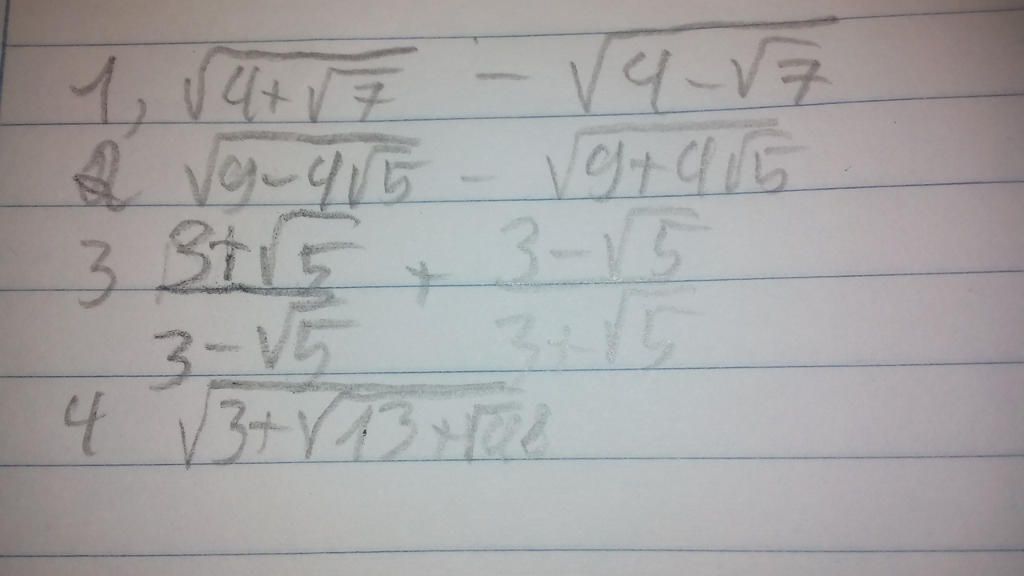 1, √(4+√7) - √(4-√7)
2 √(9-4√5) - √(9+4√5)
3 (3+√5)/(3-√5) + (3-√5)/(3+√5)
4 √(3+√(13+√